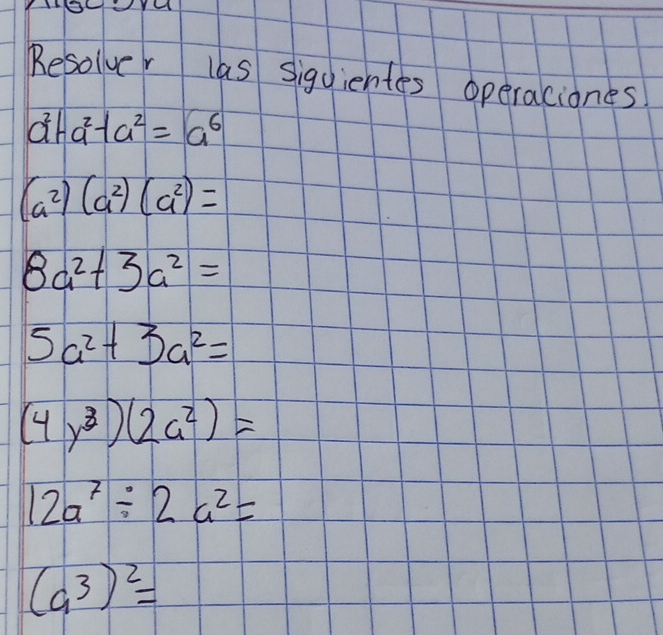 Resolver las siguientes operaciones.
a²+a²+a² = a⁶
(a²)(a²)(a²) =
8a²+3a² =
5a²+3a²=
(4y³)(2a²) =
12a⁷ ÷ 2a²=
(a³)²=